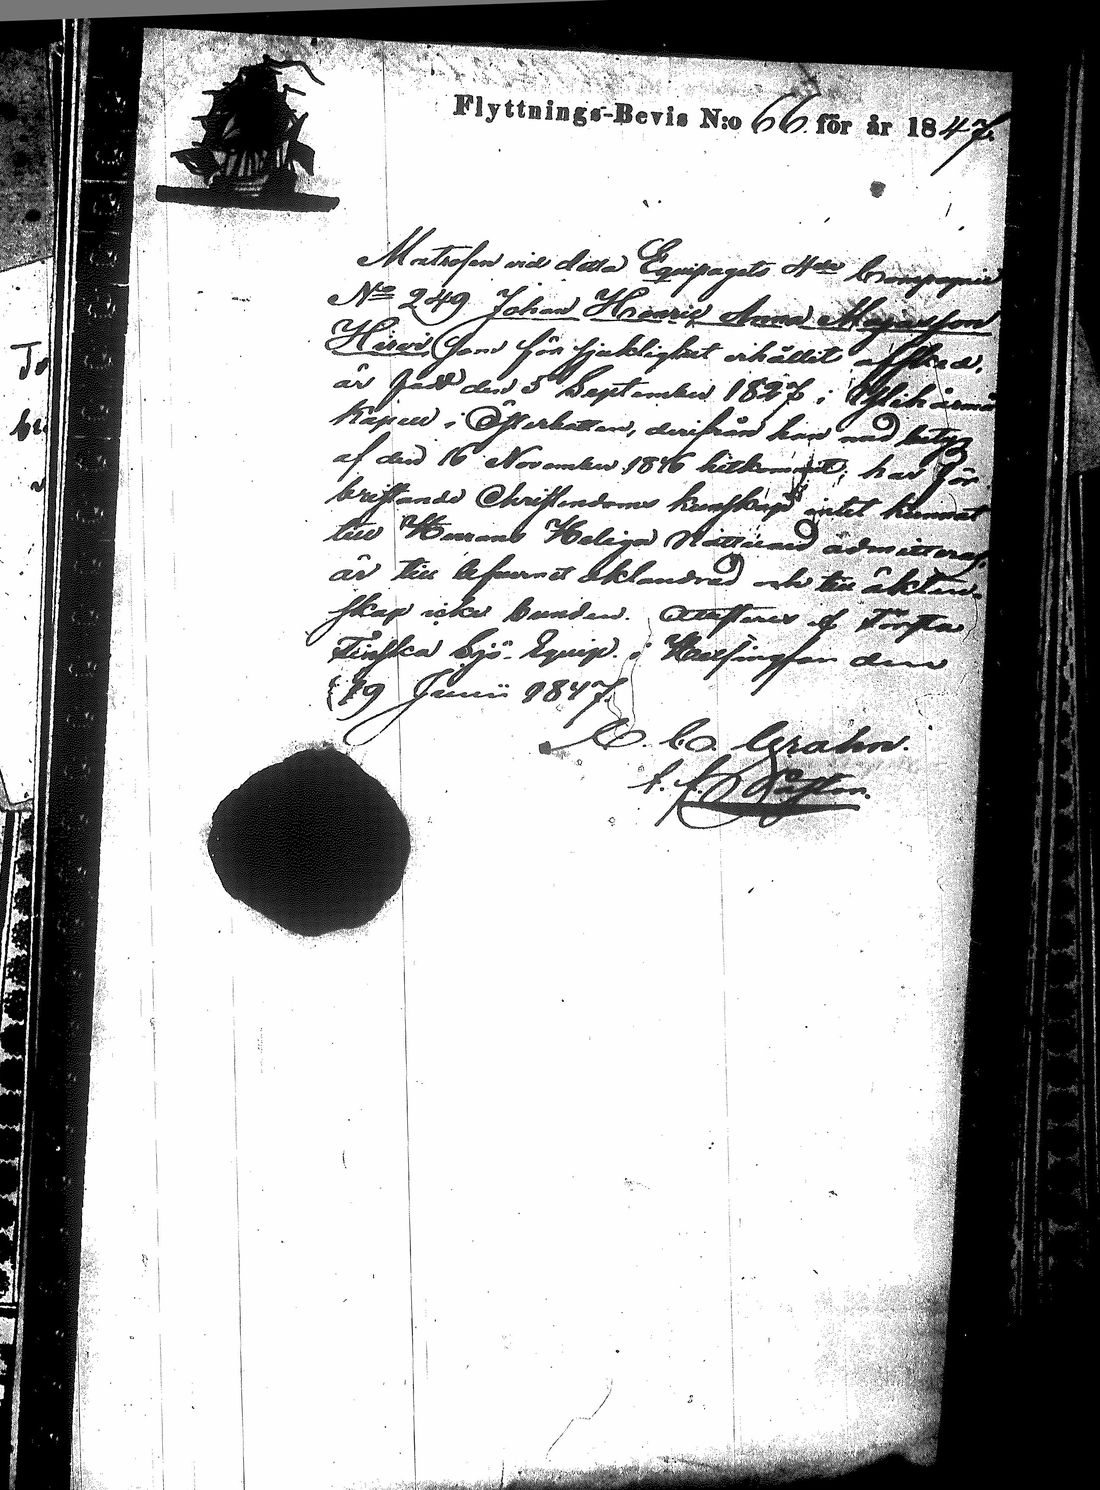 Flyttnings-Bevis N:o 66 för år 1847.
Matrosen vid detta Equipagets 4de Compagnie
No 249 Johan Henric Anna Majasson
Hirvi, som för sjuklighet erhållit afsked,
är född den 5 September 1827 i Ylihärmä
Kapell i Österbotten, derifrån han med betyg
af den 16 November 1846 hitkommit; har för
bristande Christendoms kunskap intet kunnat
till Herrans Heliga Nattvard admitteras,
är till lefvernet oklandrad och till äkten-
skap icke bunden. Attesteras af Första
Finska Sjö-Equip. i Helsingfors den
19 Junii 1847.
C. Grahn.
t. f. Pastor.
Jo